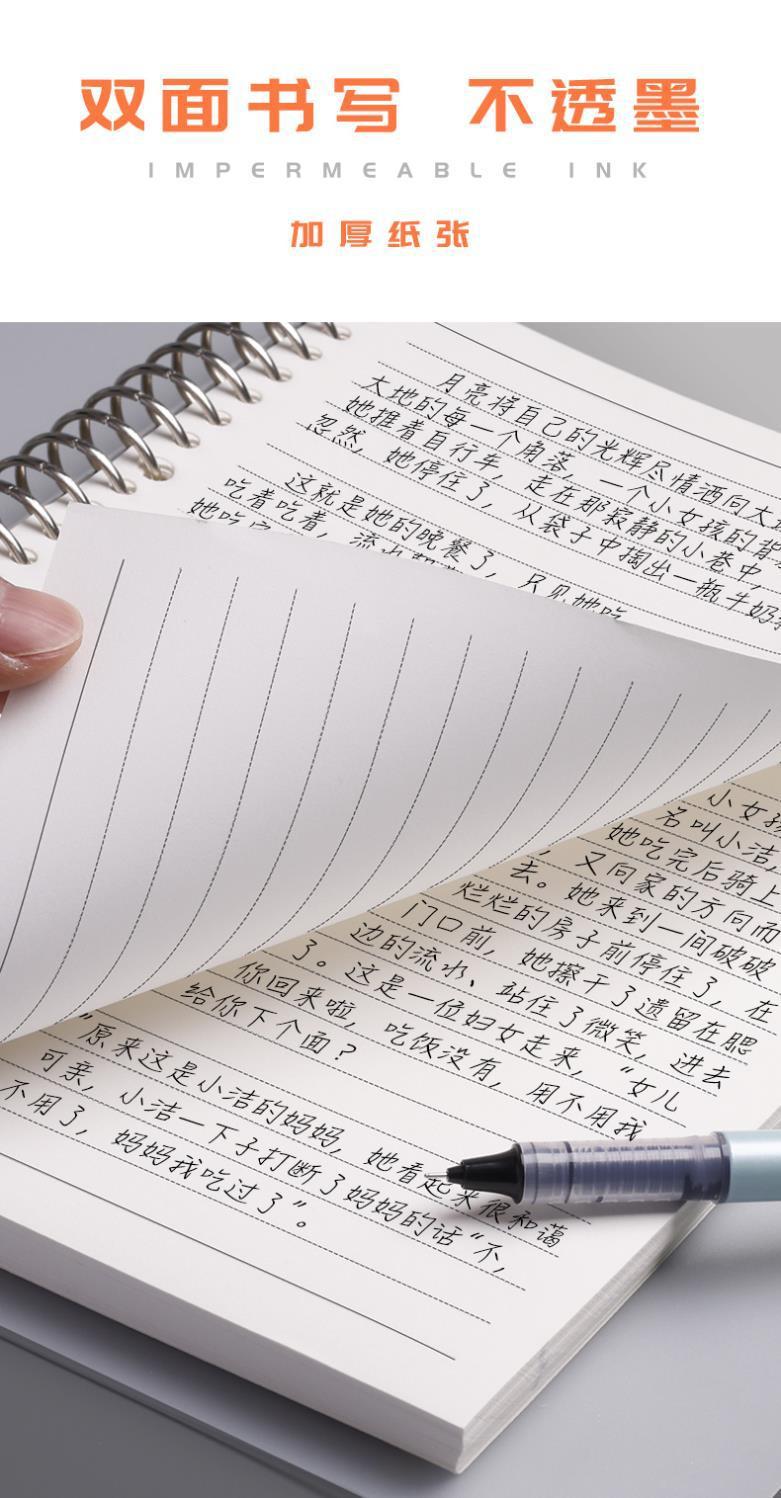 双面书写 不透墨
IMPERMEABLE INK
加厚纸张
月亮将自己的光辉尽情洒向大地
大地的每一个角落,一个小女孩的背
她推着自行车,走在那寂静的小巷中,
忽然,她停住了,从袋子中掏出一瓶牛奶
这就是她的晚餐了,只见她吃
吃着吃着,流水
她吃完
小女孩
名叫小洁,
她吃完后骑上
,又向家的方向而
去。她来到一间破破
烂烂的房子前停住了,在
门口前,她擦干了遗留在腮
边的流水、站住了微笑,进去
了。这是一位妇女走来,“女儿
你回来啦,吃饭没有,用不用我
给你下个面?
“原来这是小洁的妈妈,她看起来很和蔼
可亲,小洁一下子打断了妈妈的话“不,
不用了,妈妈我吃过了”。